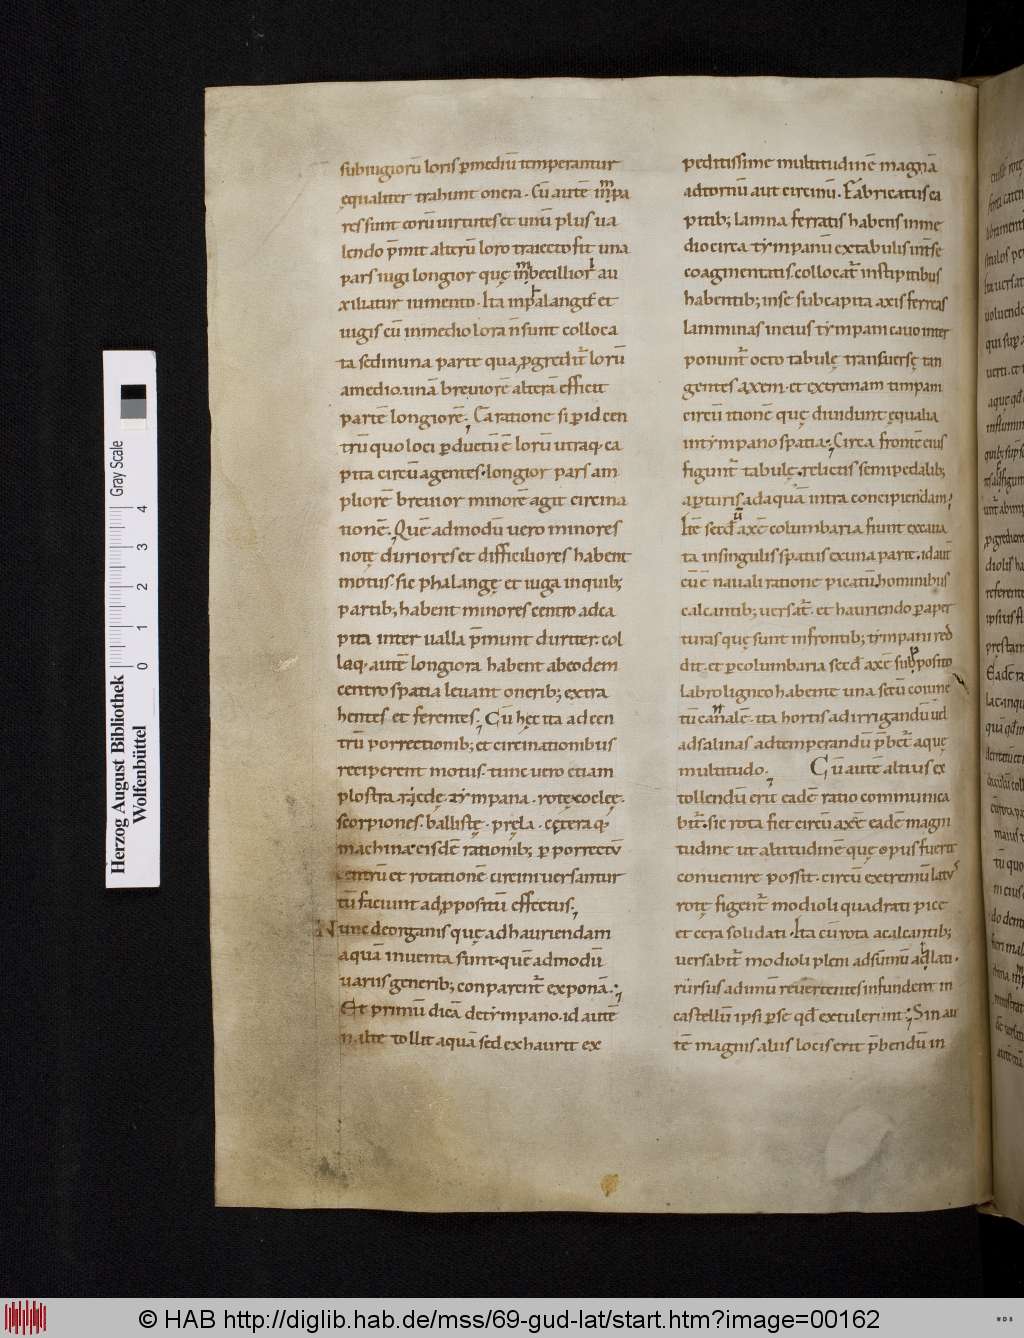 subiugiorū loris ꝑ mediū temperantur
ęqualiter trahunt onera. Cū autē impa
res sunt eorū uirtutes et unū plus ua
lendo p̄mit alterū loro traiecto fit una
pars iugi longior quę imbecilliori au
xiliatur iumento. Ita in phalangis et
iugis cū in medio lora ñ sunt colloca
ta sed in una parte qua ꝓgredit᷑ lorū
a medio. unā breuiorē alterā efficit
partē longiorē; Ea ratione si ꝑ id cen
trū quo loci ꝑductū ē lorū utraq; ca
pita circū agentes. longior pars am
pliorē breuior minorē agit circina
tionē. Quē admodū uero minores
rotę duriores et difficiliores habent
motus sic phalangę et iuga in quib;
partib; habent minores centro ad ca
pita interualla p̄munt duriter. col
laq; autē longiora habent ab eodem
centro spatia leuant onerib; extra
hentes et ferentes; Cū hęc ita ad cen
trū porrectionib; et circinationibus
reciperent motus. tunc uero etiam
plostra. raedę. tympana. rotę. coclęę.
scorpiones. ballistę. pręla. cętera q;
machinae eisdē rationib; ꝑ porrectū
centrū et rotationē circini uersantur
tū faciunt ad ꝓpositū effectus;
Nunc de organis quę ad hauriendam
aquā inuenta sunt. quē admodū
uariis generib; conparent᷑ exponā;
Et primū dicā de tympano. id autē
n̄ alte tollit aquā sed exhaurit ex
peditissime multitudinē magnā
ad tornū aut circinū. Fabricatus ca
pitib; lamna ferratis habens in me
dio circa tympanū ex tabulis int̄ se
coagmentatis. collocat᷑ in stipitibus
habentib; in se sub capita axis ferreas
lamminas in eius tympani cauo inter
ponunt᷑ octo tabulę transuersę tan
gentes axem. et extremam timpani
circū itionē quę diuidunt ęqualia
in tympano spatia; Circa frontē eius
figunt᷑ tabulę. relictis semipedalib;
aꝑturis ad aquā intra concipiendam;
Itē secdū axē columbaria fiunt excaua
ta in singulis spatiis ex una parte. id aut̄
cū ē nauali ratione picatū. hominibus
calcantib; uersat᷑. et hauriendo ꝑ aper
turas quę sunt in frontib; tympani red
dit. et ꝑ columbaria secd̄ axē supposito
labro ligneo habente una secū coniunc
tū canalē. ita hortis ad irrigandū ul̄
ad salinas ad temperandū p̄bet᷑ aquę
multitudo; Cū autē altius ex
tollendū erit eadē ratio communica
bit᷑. sic rota fiet circū axē eadē magni
tudine ut altitudinē quę opus fuerit
conuenire possit. circū extremū latus
rotę figent᷑ modioli quadrati pice
et cera solidati. Ita cū rota a calcantib;
uersabit᷑ modioli pleni ad sūmū ablati.
rursus ad imū reuertentes infundent in
castellū ipsi ꝑ se qd̄ extulerunt; Sin au
tē magnis aliis locis erit p̄bendū in
Gray Scale
0 1 2 3 4
Herzog August Bibliothek
Wolfenbüttel
© HAB http://diglib.hab.de/mss/69-gud-lat/start.htm?image=00162